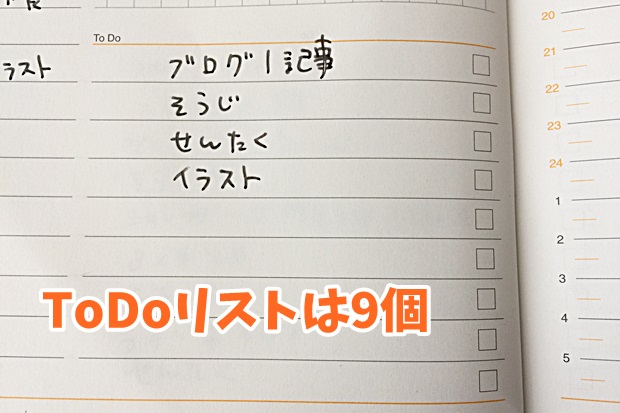 To Do
ブログ1記事
そうじ
せんたく
イラスト
ラスト
ToDoリストは9個
20
21
22
23
24
1
2
3
4
5